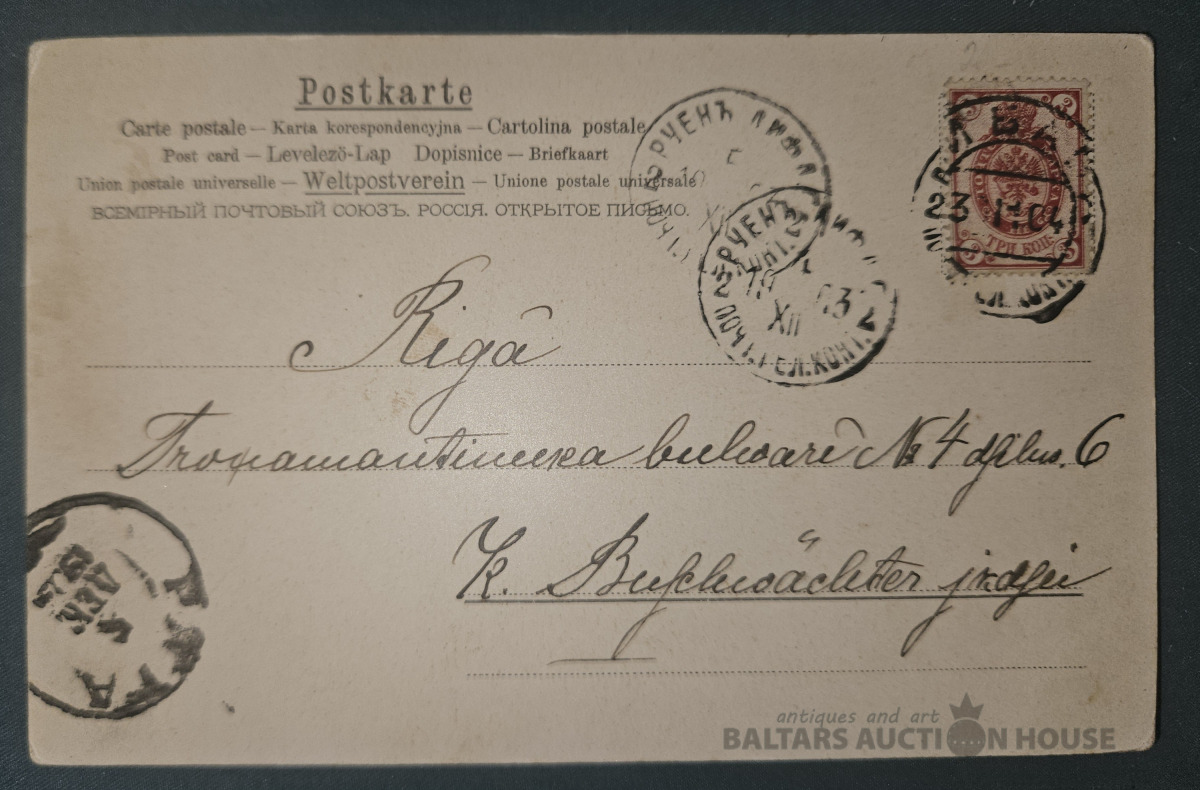 Postkarte
Carte postale — Karta korespondencyjna — Cartolina postale
Post card — Levelező-Lap Dopisnice — Briefkaart
Union postale universelle — Weltpostverein — Unione postale universale
ВСЕМІРНЫЙ ПОЧТОВЫЙ СОЮЗЪ. РОССІЯ. ОТКРЫТОЕ ПИСЬМО.
РЧЕНЪ ЛИФЛ
РЧЕНЪ
XII
23
04
3 3
ТРИ КОП.
3 3
Rigâ
bulvarî № 4 6
K. Buschwächter
РИГА
5
ДЕК
antiques and art
BALTARS AUCTION HOUSE